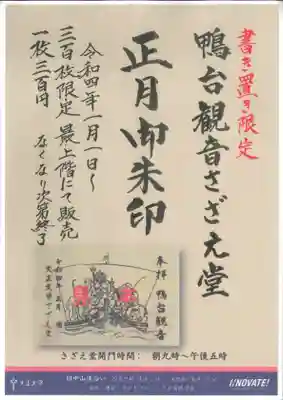 書き置き限定
鴨台観音さざえ堂
正月御朱印
令和四年一月一日～
三百枚限定 最上階にて販売
一枚三百円 なくなり次第終了
奉拝 鴨台観音
令和四年 正月
大正大学さざえ堂
さざえ堂開門時間： 朝九時～午後五時
大正大学
I/NOVATE!